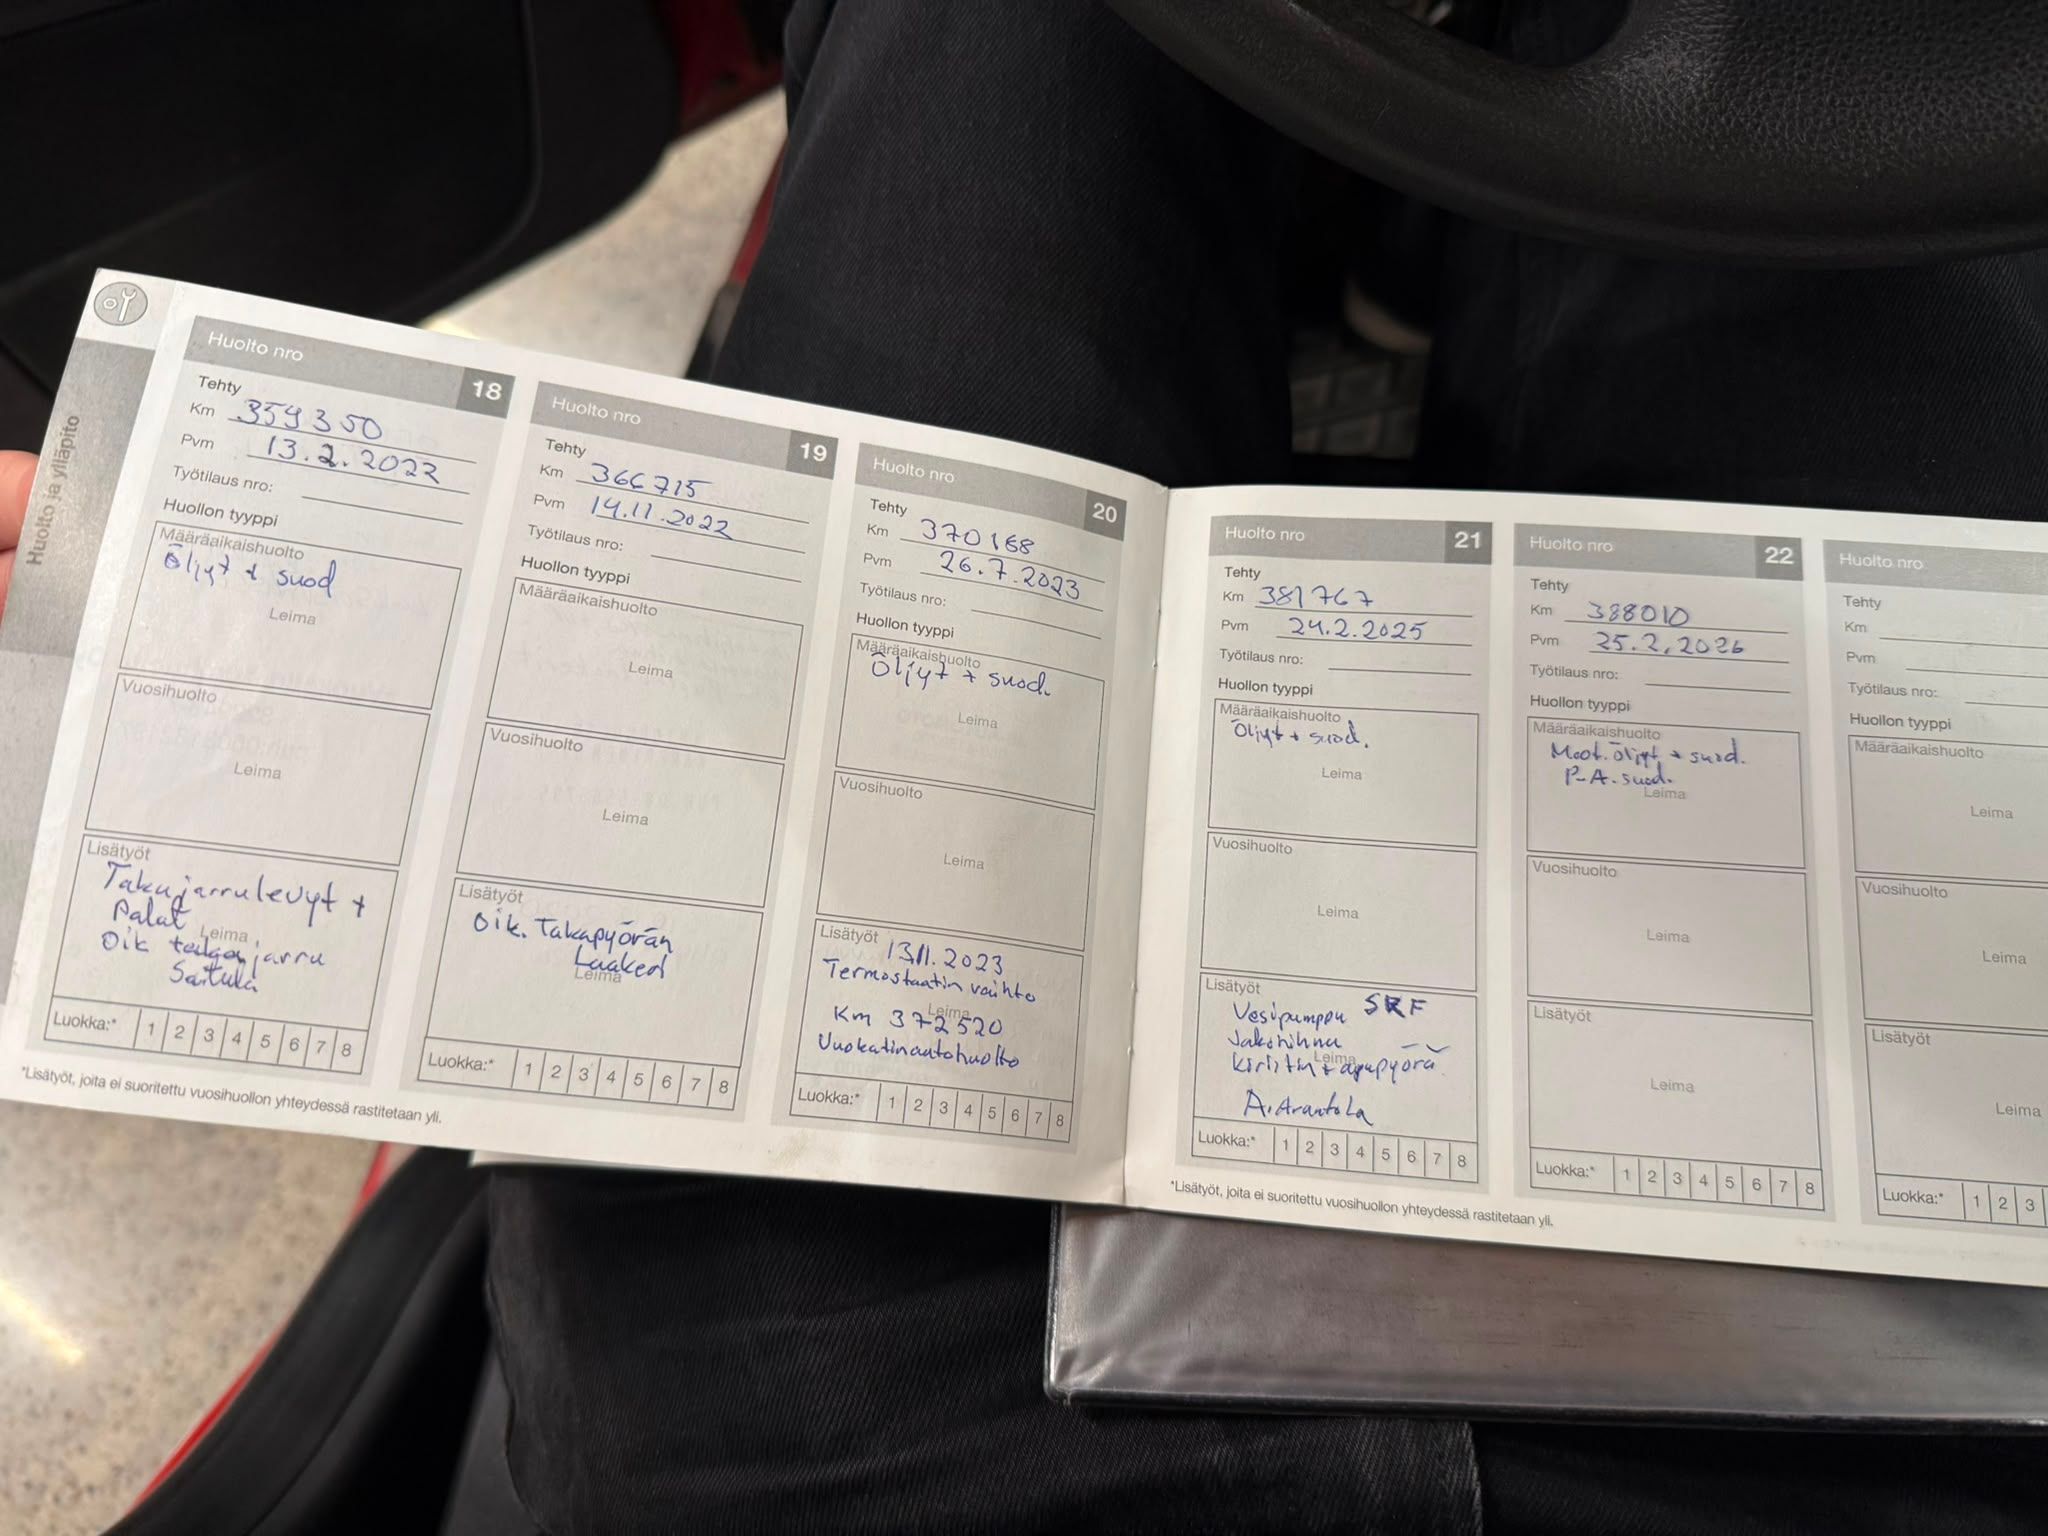 Huolto ja ylläpito
Huolto nro 18
Tehty
Km 359350
Pvm 13.2.2022
Työtilaus nro:
Huollon tyyppi
Määräaikaishuolto
Öljyt + suod
Leima
Vuosihuolto
Leima
Lisätyöt
Takajarrulevyt +
Palat
Leima
Oik takajarru
Satula
Luokka:* 1 2 3 4 5 6 7 8
*Lisätyöt, joita ei suoritettu vuosihuollon yhteydessä rastitetaan yli.
Huolto nro 19
Tehty
Km 366715
Pvm 14.11.2022
Työtilaus nro:
Huollon tyyppi
Määräaikaishuolto
Leima
Vuosihuolto
Leima
Lisätyöt
Oik. Takapyörän
Laakeri
Leima
Luokka:* 1 2 3 4 5 6 7 8
Huolto nro 20
Tehty
Km 370168
Pvm 26.7.2023
Työtilaus nro:
Huollon tyyppi
Määräaikaishuolto
Öljyt + suod.
Leima
Vuosihuolto
Leima
Lisätyöt
13.11.2023
Termostaatin vaihto
Leima
Km 372520
Vuokatinautohuolto
Luokka:* 1 2 3 4 5 6 7 8
Huolto nro 21
Tehty
Km 381767
Pvm 24.2.2025
Työtilaus nro:
Huollon tyyppi
Määräaikaishuolto
Öljyt + suod.
Leima
Vuosihuolto
Leima
Lisätyöt
Vesipumppu SKF
Jakohihna
Leima
Kiristin + apupyörä
A. Arantola
Luokka:* 1 2 3 4 5 6 7 8
*Lisätyöt, joita ei suoritettu vuosihuollon yhteydessä rastitetaan yli.
Huolto nro 22
Tehty
Km 388010
Pvm 25.2.2026
Työtilaus nro:
Huollon tyyppi
Määräaikaishuolto
Moot. öljyt + suod.
P-A. suod.
Leima
Vuosihuolto
Leima
Lisätyöt
Leima
Luokka:* 1 2 3 4 5 6 7 8
Huolto nro
Tehty
Km
Pvm
Työtilaus nro:
Huollon tyyppi
Määräaikaishuolto
Leima
Vuosihuolto
Leima
Lisätyöt
Leima
Luokka:* 1 2 3